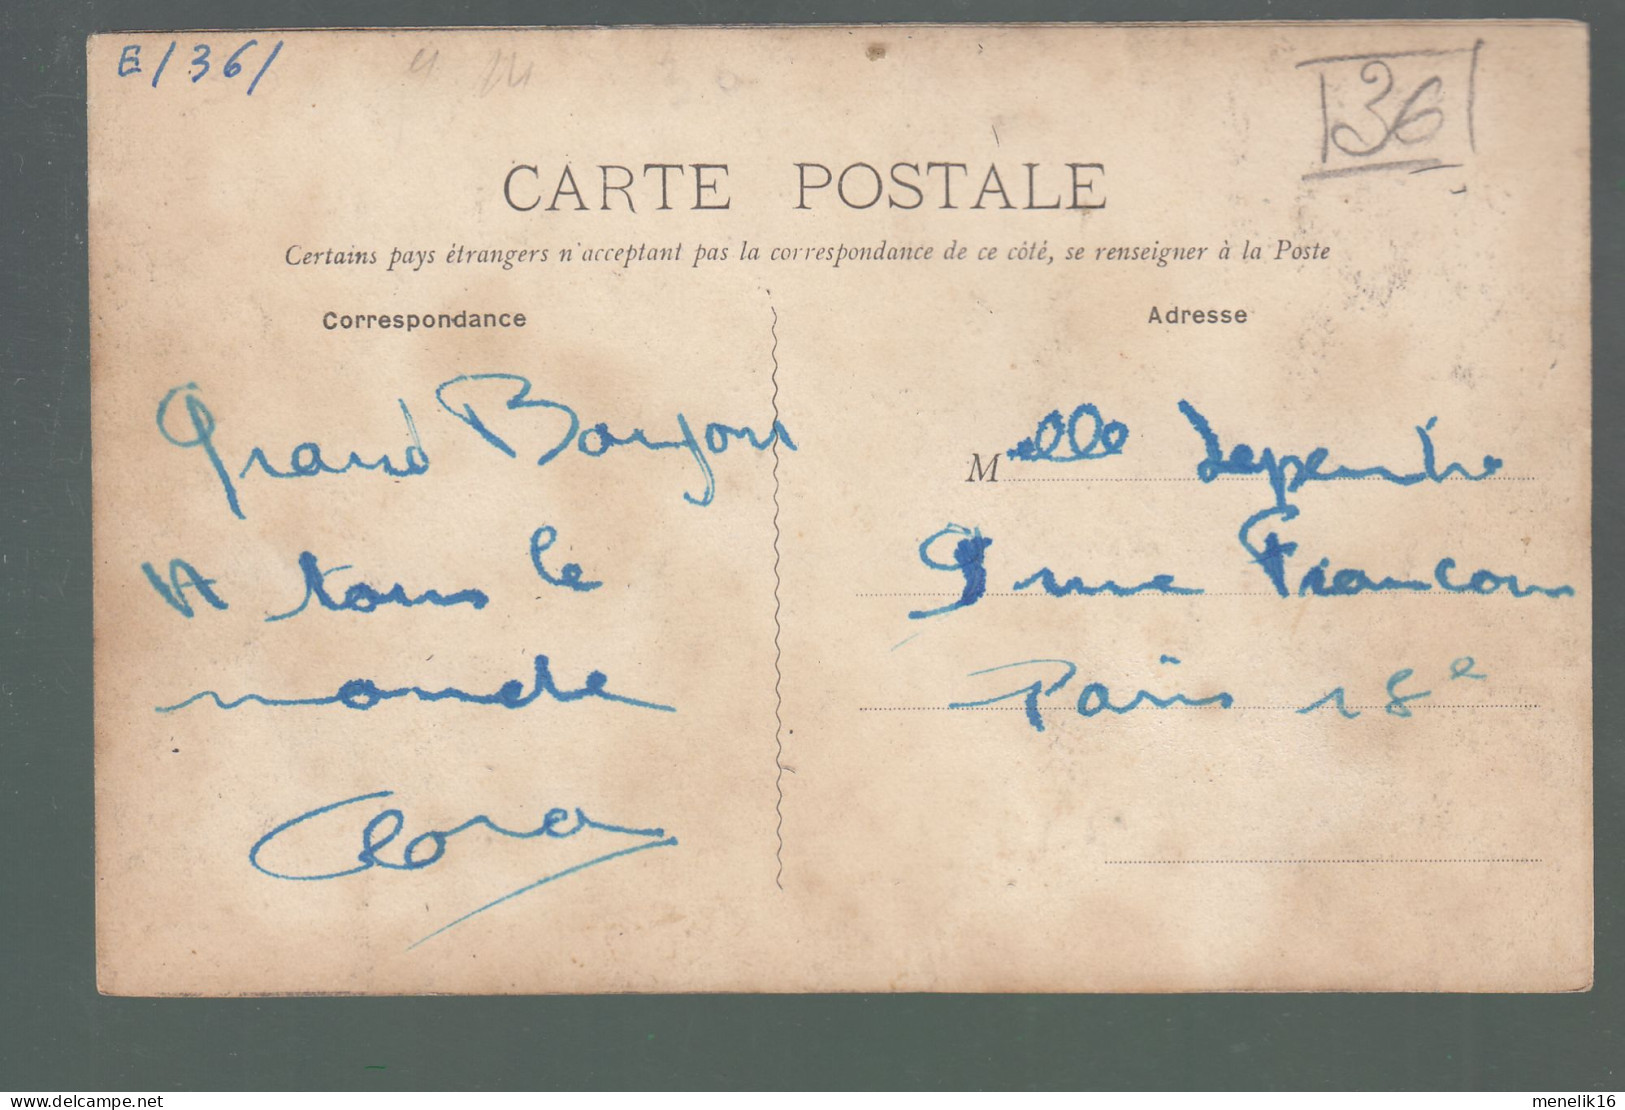 E/36/
36
CARTE POSTALE
Certains pays étrangers n'acceptant pas la correspondance de ce côté, se renseigner à la Poste
Correspondance
Grand Bonjour
A tous le
monde
Clara
Adresse
Melle
9 rue Francoeur
Paris 18e
delcampe.net
menelik16